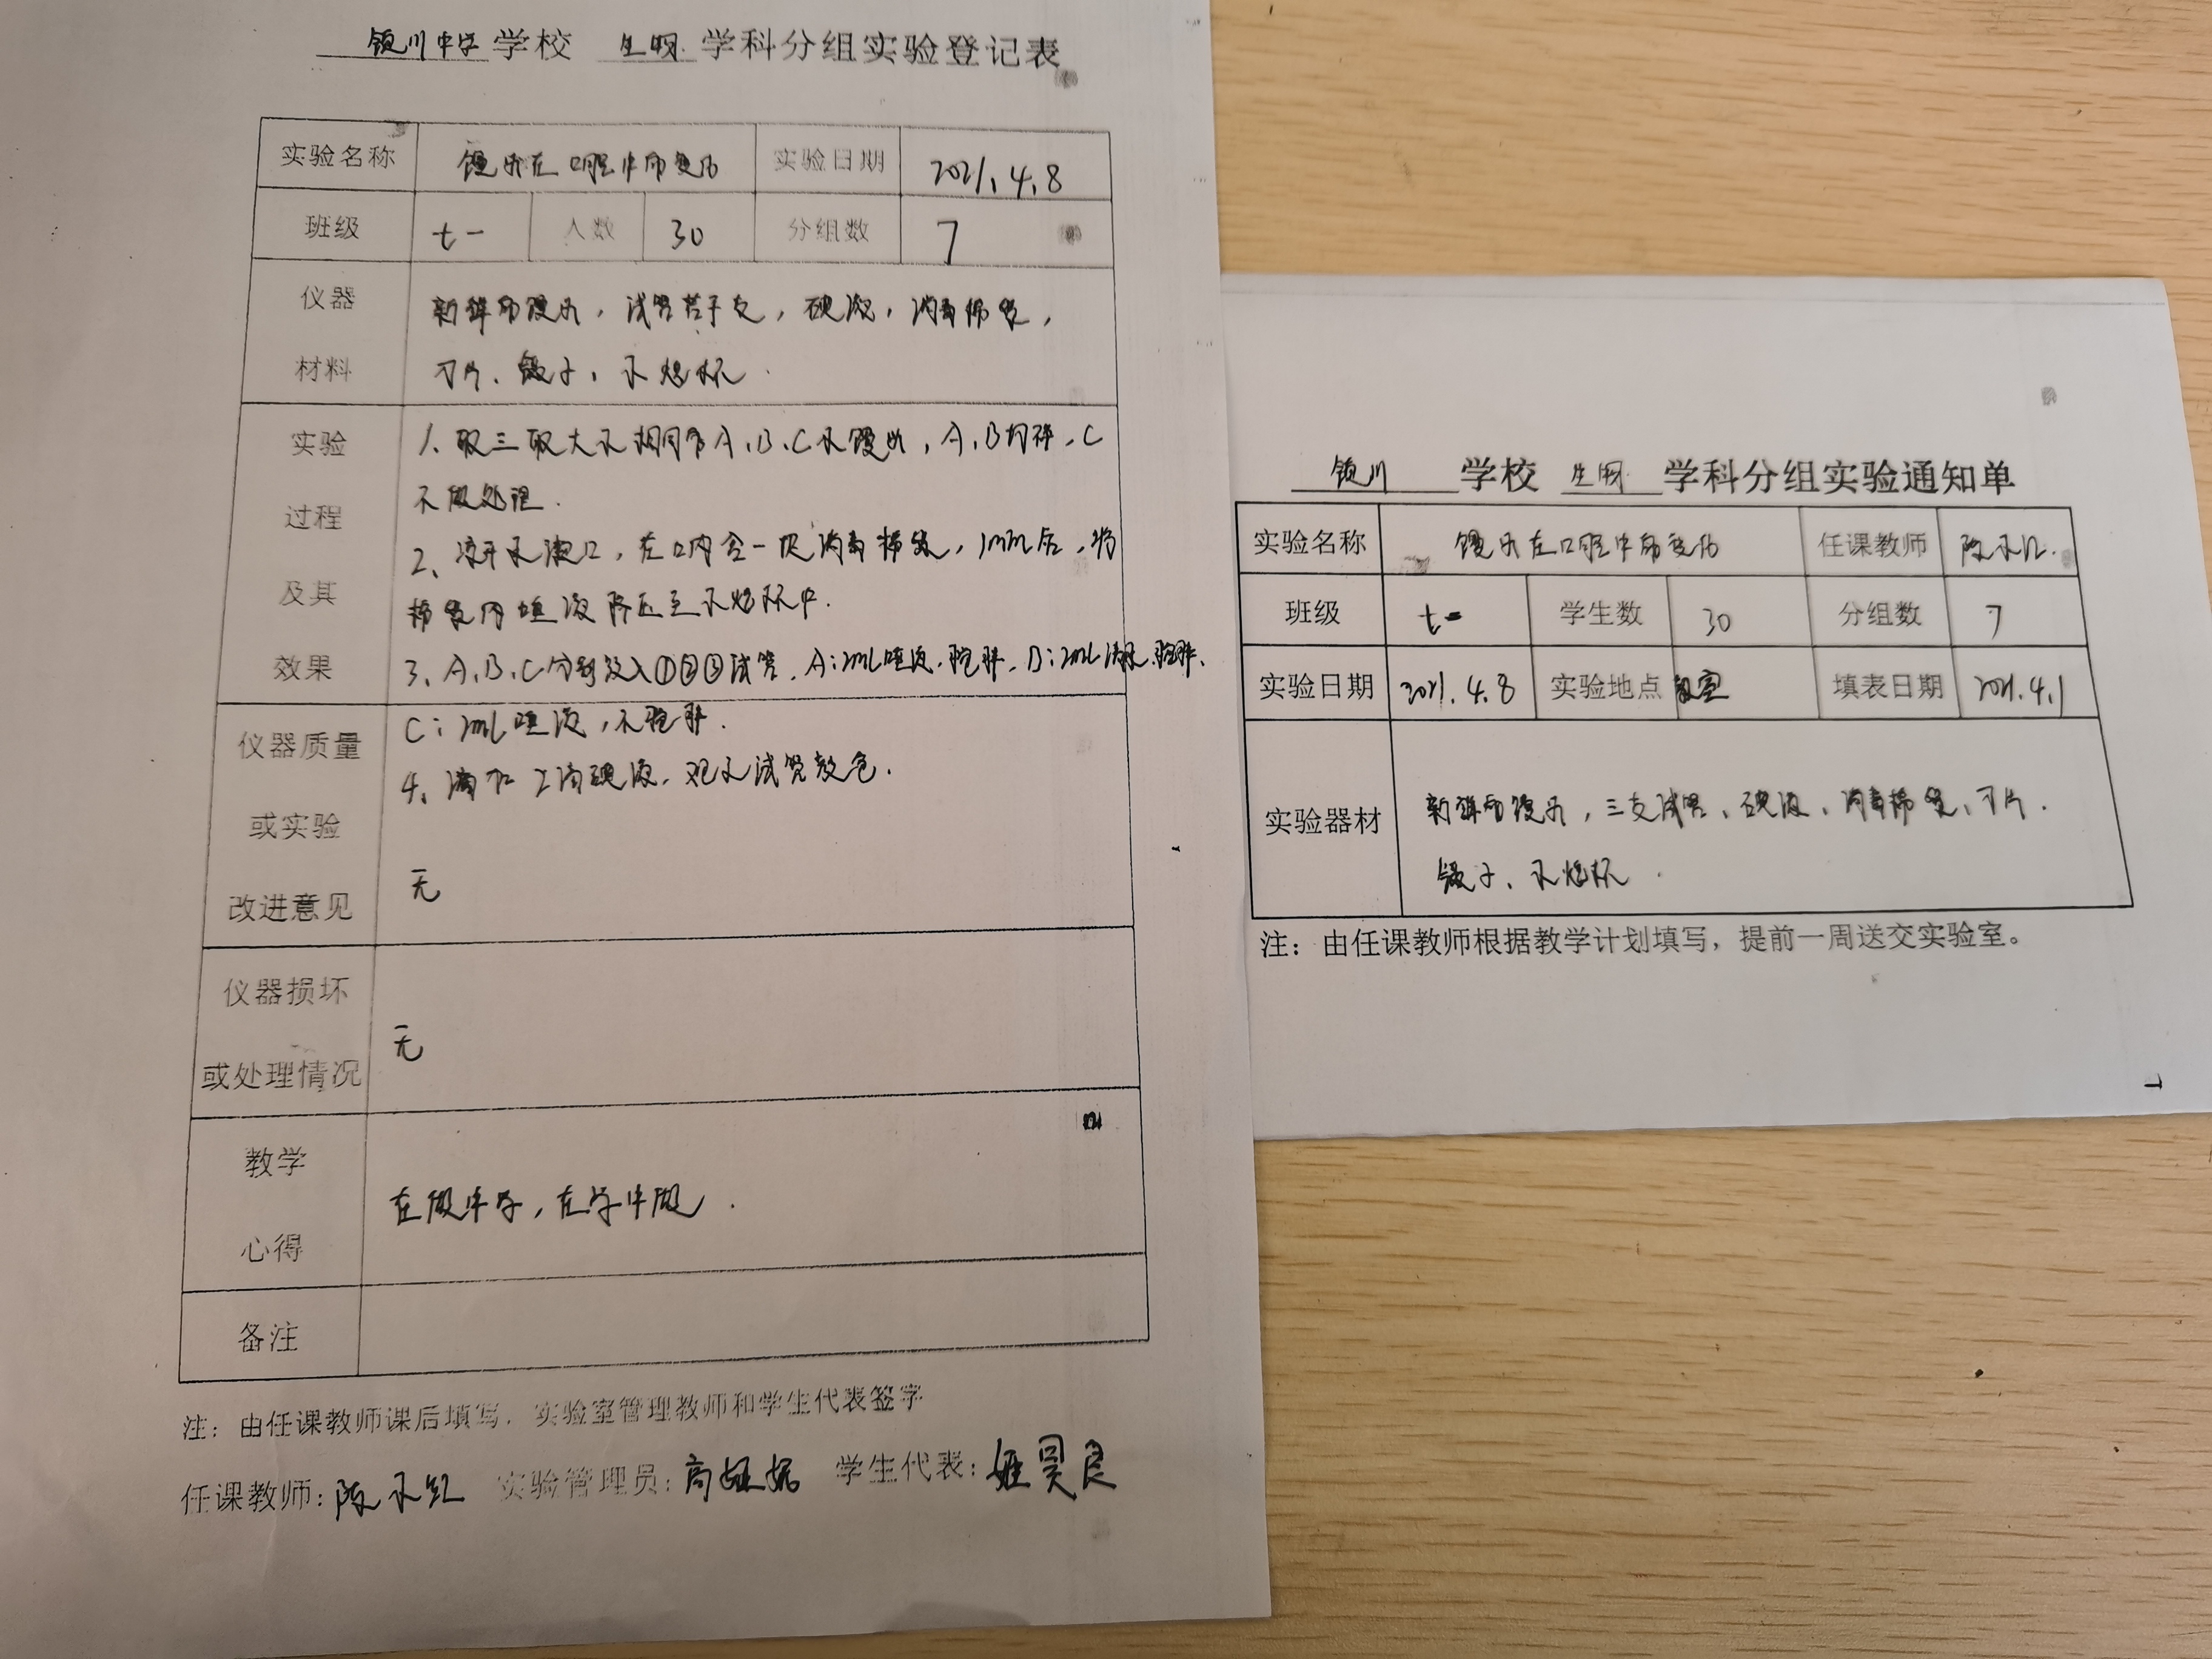 银川中学学校 生物 学科分组实验登记表
实验名称 馒头在口腔中的变化 实验日期 2021.4.8
班级 七一 人数 30 分组数 7
仪器 新鲜的馒头,试管若干支,碘液,消毒棉絮,
材料 刀片、镊子,小烧杯.
实验 1、取三块大小相同的A、B、C小馒头,A、B切碎,C
不做处理.
过程 2、凉开水漱口,在口内含一块消毒棉絮,1min后,将
及其 棉絮内唾液挤压至小烧杯中.
效果 3、A、B、C分别放入①②③试管,A:2mL唾液、搅拌、B:2mL清水、搅拌、
仪器质量 C:2mL唾液,不搅拌.
4、滴加2滴碘液,观察试管颜色.
或实验
改进意见 无
仪器损坏
或处理情况 无
教学
心得 在做中学,在学中做.
备注
注:由任课教师课后填写,实验室管理教师和学生代表签字
任课教师:陈 实验管理员:高 学生代表:昊良
银川 学校 生物 学科分组实验通知单
实验名称 馒头在口腔中的变化 任课教师 陈
班级 七一 学生数 30 分组数 7
实验日期 2021.4.8 实验地点 教室 填表日期 2021.4.1
实验器材 新鲜的馒头,三支试管、碘液、消毒棉絮、刀片.
镊子、小烧杯.
注:由任课教师根据教学计划填写,提前一周送交实验室。